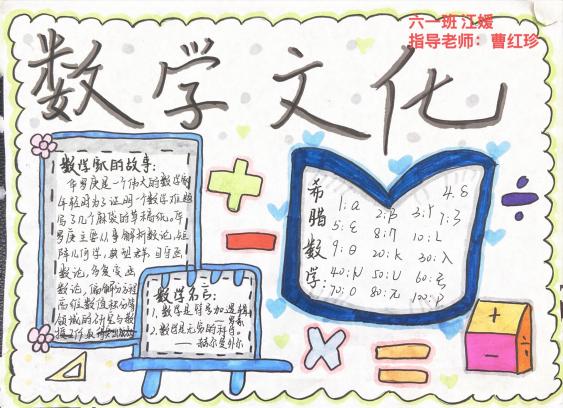 六一班 江媛
指导老师：曹红珍
数学文化
数学家的故事:
华罗庚是一个伟大的数学家
年轻时为了证明一个数学难题
写了几个麻袋的草稿纸。华
罗庚主要从事解析数论,矩
阵几何学,典型群,自守函
数论,多复变函
数论,偏微分方程
高位数值积分等
领域的研究与教
授工作
数学名言:
1、数学是符号加逻辑
2、数学是无穷的科学
——赫尔曼外尔
希腊数学:
1:α 2:β 3:γ 4:δ
5:ε 7:ζ
8:η 10:ι
9:θ 20:κ 30:λ
40:μ 50:ν 60:ξ
70:ο 80:π 100:ρ
+
-